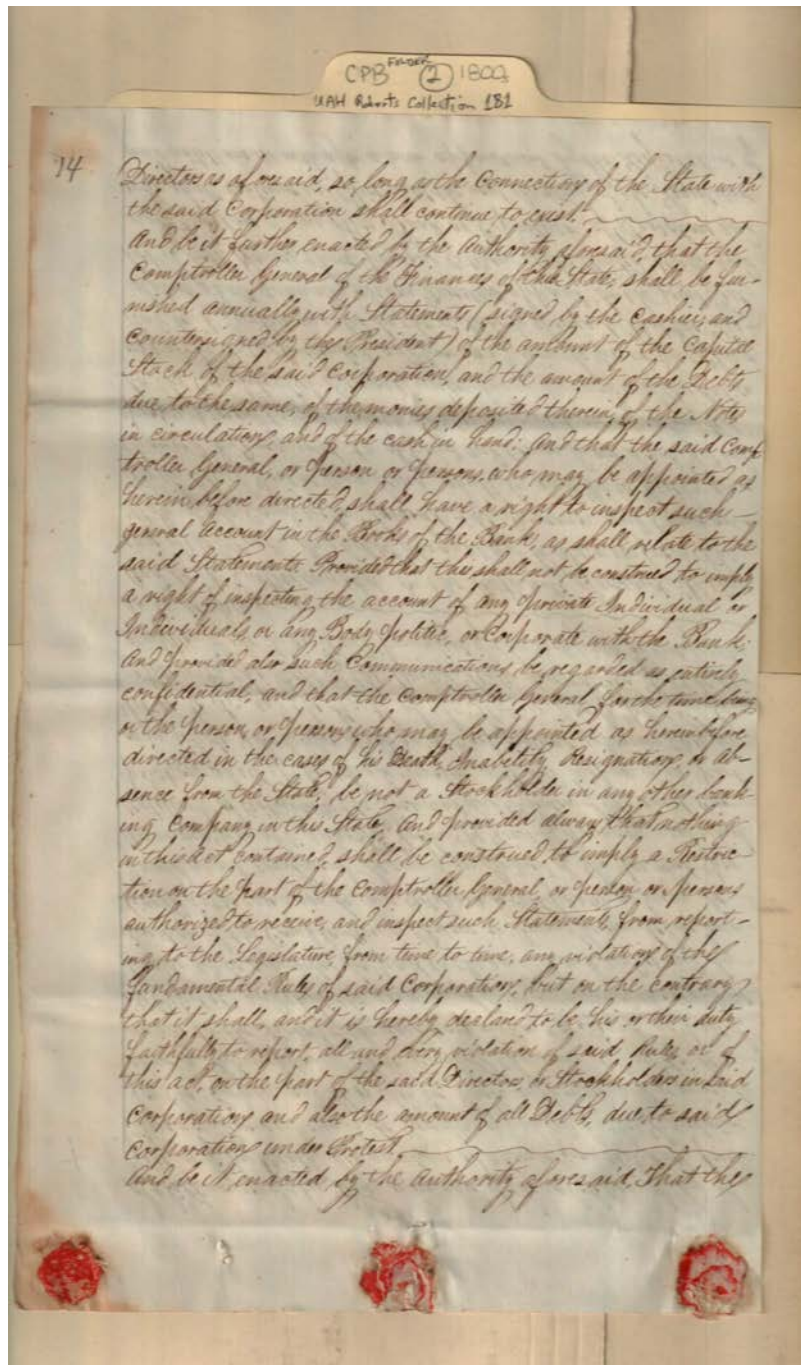 CPB FOLDER 2 1802
UAH Roberts Collection 181
14
Directors as aforesaid, so long as the Connection of the State with
the said Corporation shall continue to exist.
And be it further enacted by the Authority aforesaid, that the
Comptroller General of the Finances of this State, shall be fur-
nished annually with Statements (signed by the Cashier, and
Countersigned by the President) of the amount of the Capital
Stock of the said Corporation, and the amount of the Debts
due to the same, of the monies deposited therein, of the Notes
in circulation, and of the cash in hand: And that the said Comp-
troller General, or person or persons, who may be appointed as
herein before directed, shall have a right to inspect such
general Account in the Books of the Bank, as shall relate to the
said Statements Provided that this shall not be construed to imply
a right of inspecting the account of any private Individual or
Individuals, or any Body politic, or Corporate with the Bank:
And provided also such Communications be regarded as entirely
confidential, and that the Comptroller General for the time being
or the person, or persons who may be appointed as herein before
directed in the cases of his Death, Inability, Resignation, or Ab-
sence from the State, be not a Stockholder in any other bank-
ing Company in this State, And provided always that nothing
in this Act contained, shall be construed, to imply a Restric-
tion on the part of the Comptroller General, or person or persons
authorized to receive, and inspect such Statements, from report-
ing to the Legislature, from time to time, any violation of the
fundamental Rules of said Corporation, but on the contrary
that it shall, and it is hereby declared to be his or their duty
faithfully to report, all and every violation of said Rules or of
this act, on the part of the said Directors, or Stockholders in said
Corporation and also the amount of all Debts, due to said
Corporation under Protest.
And be it enacted by the Authority aforesaid, That the